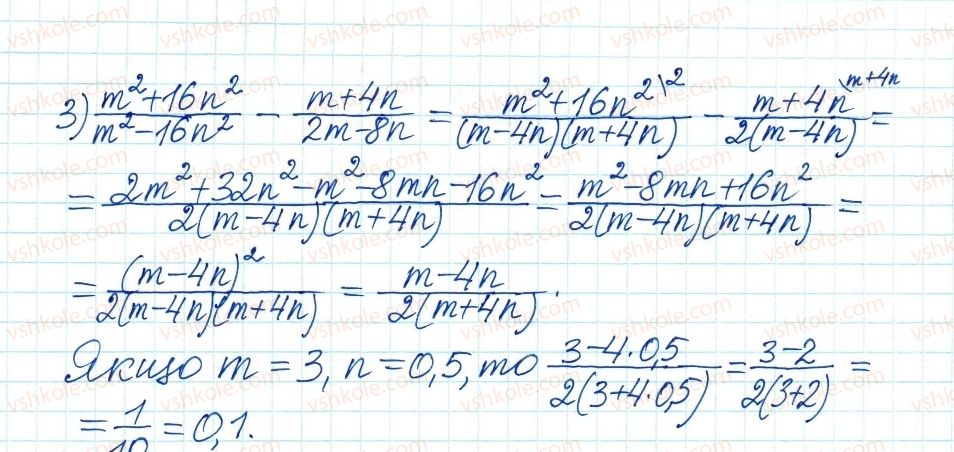 3) (m²+16n²)/(m²-16n²) - (m+4n)/(2m-8n) = (m²+16n²\2)/((m-4n)(m+4n)) - (m+4n\m+4n)/(2(m-4n)) =
= (2m²+32n²-m²-8mn-16n²)/(2(m-4n)(m+4n)) = (m²-8mn+16n²)/(2(m-4n)(m+4n)) =
= (m-4n)²/(2(m-4n)(m+4n)) = (m-4n)/(2(m+4n)).
Якщо m=3, n=0,5, то (3-4·0,5)/(2(3+4·0,5)) = (3-2)/(2(3+2)) =
= 1/10 = 0,1.
vshkole.com